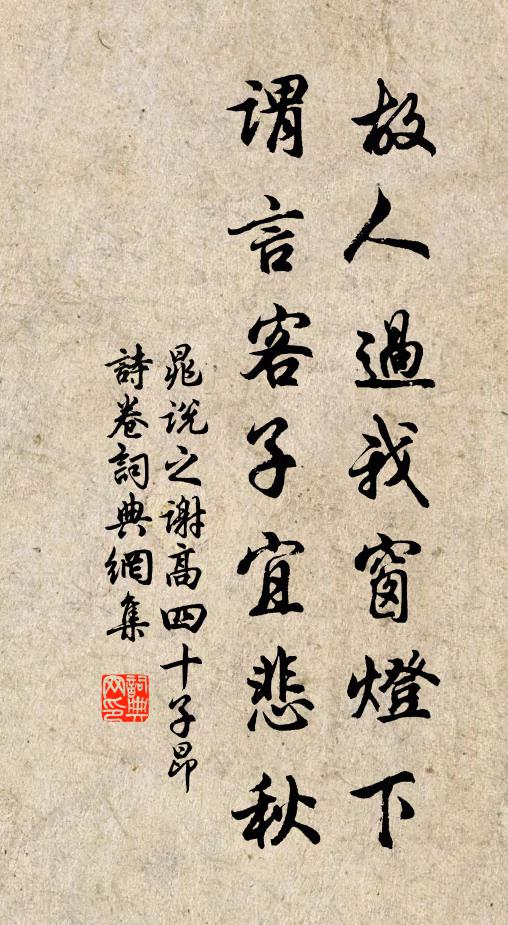 故人過我窗燈下
謂言客子宜悲秋
晁说之谢高四十子昂
詩卷詞典網集
詞典
网印